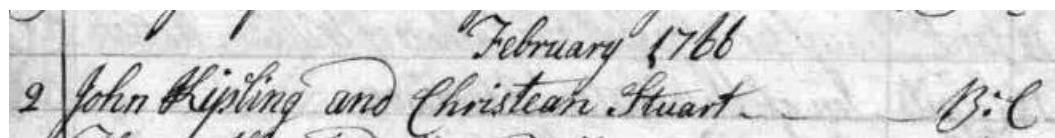 February 1766
2 John Kipling and Christean Stuart - B: C